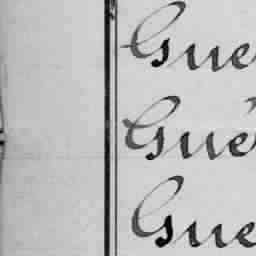 Gue
Gué
Gue